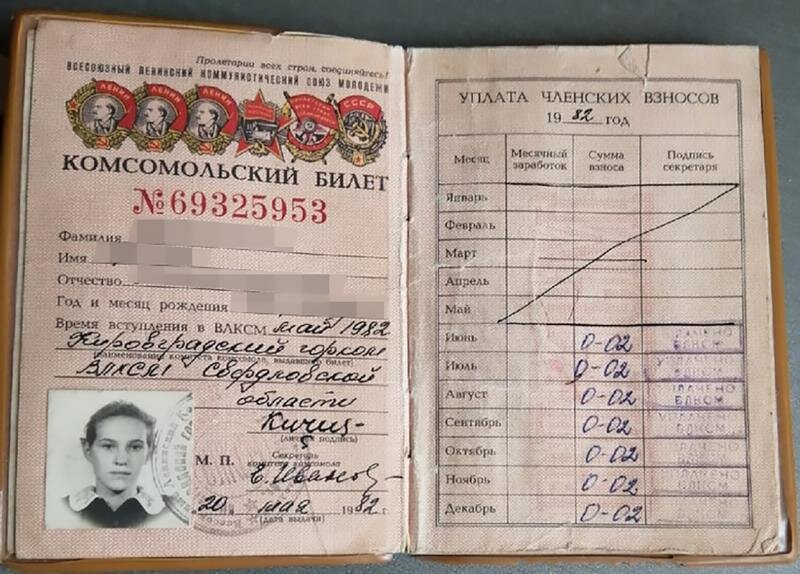 Пролетарии всех стран, соединяйтесь!
ВСЕСОЮЗНЫЙ ЛЕНИНСКИЙ КОММУНИСТИЧЕСКИЙ СОЮЗ МОЛОДЕЖИ
ЛЕНИН ЛЕНИН ЛЕНИН СССР
КОМСОМОЛЬСКИЙ БИЛЕТ
№ 69325953
Фамилия
Имя
Отчество
Год и месяц рождения
Время вступления в ВЛКСМ май 1982
Кировградский горком
(наименование комитета комсомола, выдавшего билет)
ВЛКСМ Свердловской
области
(личная подпись)
М. П.
Секретарь
комитета комсомола
Е. Иванов
20 мая 1982 г.
(дата выдачи)
УПЛАТА ЧЛЕНСКИХ ВЗНОСОВ
1982 год
Месяц Месячный заработок Сумма взноса Подпись секретаря
Январь
Февраль
Март
Апрель
Май
Июнь 0-02 УПЛАЧЕНО ВЛКСМ
Июль 0-02 УПЛАЧЕНО ВЛКСМ
Август 0-02 УПЛАЧЕНО ВЛКСМ
Сентябрь 0-02 УПЛАЧЕНО ВЛКСМ
Октябрь 0-02 УПЛАЧЕНО ВЛКСМ
Ноябрь 0-02 УПЛАЧЕНО ВЛКСМ
Декабрь 0-02